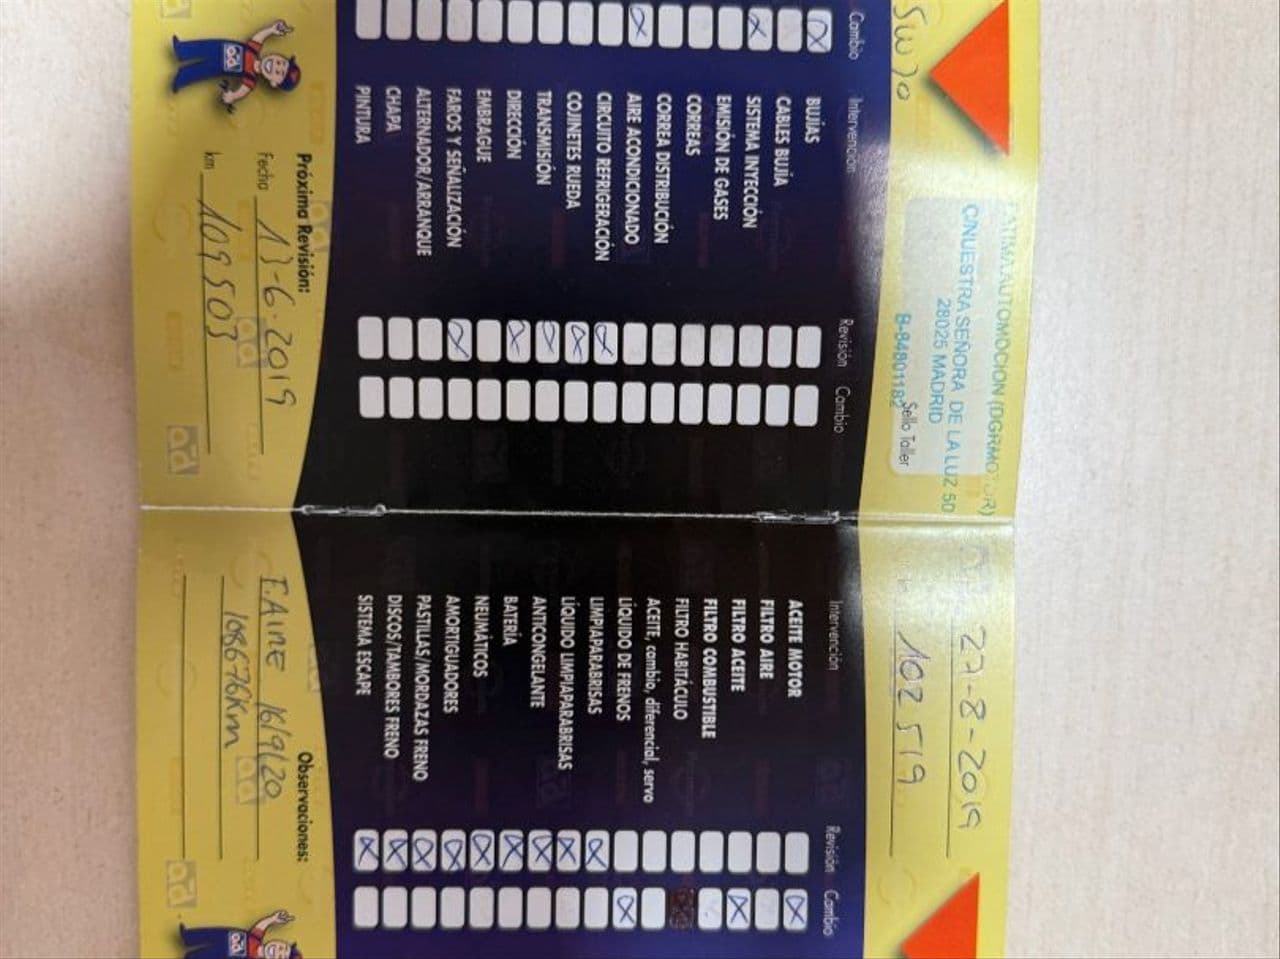 5W30
FATIMA AUTOMOCION (DGRMOTOR)
C/NUESTRA SEÑORA DE LA LUZ 50
28025 MADRID
B-84801182
Sello Taller
Cambio
Intervención
Revisión
Cambio
BUJÍAS
CABLES BUJÍA
SISTEMA INYECCIÓN
EMISIÓN DE GASES
CORREAS
CORREA DISTRIBUCIÓN
AIRE ACONDICIONADO
CIRCUITO REFRIGERACIÓN
COJINETES RUEDA
TRANSMISIÓN
DIRECCIÓN
EMBRAGUE
FAROS Y SEÑALIZACIÓN
ALTERNADOR/ARRANQUE
CHAPA
PINTURA
Próxima Revisión:
Fecha 13-6-2019
km 109503
ad
27-8-2019
102519
Intervención
Revisión
Cambio
ACEITE MOTOR
FILTRO AIRE
FILTRO ACEITE
FILTRO COMBUSTIBLE
FILTRO HABITÁCULO
ACEITE, cambio, diferencial, servo
LÍQUIDO DE FRENOS
LIMPIAPARABRISAS
LÍQUIDO LIMPIAPARABRISAS
ANTICONGELANTE
BATERÍA
NEUMÁTICOS
AMORTIGUADORES
PASTILLAS/MORDAZAS FRENO
DISCOS/TAMBORES FRENO
SISTEMA ESCAPE
Observaciones:
F.AIRE 16/9/20
108676Km
ad